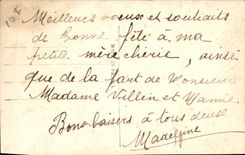 10F
Meilleurs voeux et souhaits
de bonne fête à ma
petite mère chérie, ainsi
que de la part de Monsieur
Madame Villein et Mamie.
Bons baisers à tous deux
Madeleine